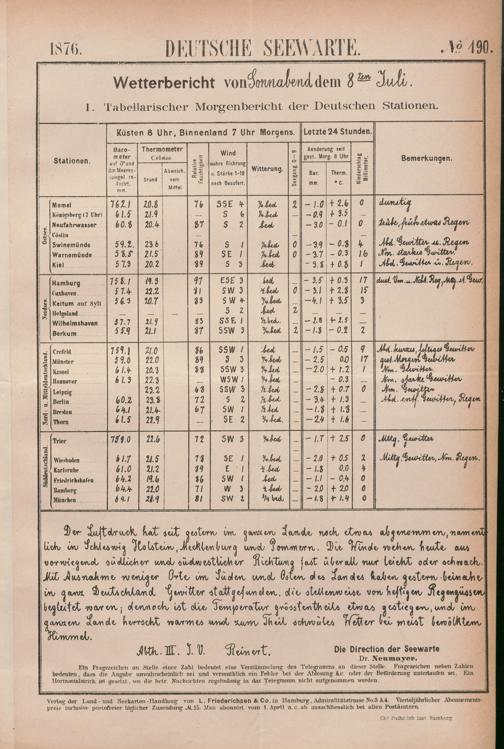 1876. DEUTSCHE SEEWARTE. No 190.
Wetterbericht von Sonnabend dem 8ten Juli.
I. Tabellarischer Morgenbericht der Deutschen Stationen.
Küsten 8 Uhr, Binnenland 7 Uhr Morgens. Letzte 24 Stunden.
Stationen. Barometer Thermometer Celsius Stand Relative Feuchtigkeit Wind Witterung. Seegang 0-9 Aenderung seit gestr. Morg. 8 Uhr Bar. mm. Therm. °c. Niederschlag Millimeter. Bemerkungen.
Ostsee.
Memel 762.1 20.8 76 SSE 4 2 -1.0 +2.6 0 dunstig
Königsberg (7 Uhr) 61.5 21.9 S 6 -0.9 +3.5
Neufahrwasser 60.8 20.4 87 S 2 bed -3.0 -0.1 0 trübe, früh etwas Regen
Cöslin
Swinemünde 59.2 23.6 76 S 1 0 -3.9 -0.8 4 Abd. Gewitter u. Regen
Warnemünde 58.5 21.5 89 SE 1 0 -3.7 -0.3 16 Nm. starkes Gewitter
Kiel 57.3 20.2 89 S 3 bed -3.8 +0.8 1 Abd. Gewitter u. Regen.
Nordsee.
Hamburg 758.1 19.3 97 ESE 3 -3.5 +0.3 17
Cuxhaven 57.4 22.2 81 SW 3 0 -3.1 +2.8 15
Keitum auf Sylt 56.3 20.7 83 SW 4 -4.1 +3.5 3
Helgoland S 2 bed 2
Wilhelmshaven 57.7 21.9 83 SSE 1 -2.8 +2.5
Borkum 55.9 21.1 87 SSW 3 2 -1.8 -0.2 2
Nord. u. Mitteldeutschland.
Crefeld 759.1 21.0 86 SSW 1 -1.5 -0.5 9 Abd. kurzes, heftiges Gewitter
Münster 59.0 22.0 89 S 3 -2.5 0.0 17 gest. Morgen Gewitter
Kassel 61.4 20.3 88 SSW 3 -2.0 +1.2 1 Nm. Gewitter
Hannover 61.3 22.3 WSW 1 -0.3 Nm. starke Gewitter
Leipzig 23.2 68 SSW 3 -2.8 +0.7 0 Nm. Gewitter
Berlin 60.2 23.8 72 S 2 -3.4 +1.3 Abd. entf. Gewitter, Regen
Breslau 64.1 21.4 67 SW 1 -1.8 +1.8
Thorn 61.5 22.9 SE 2 -2.4 +1.6
Süddeutschland.
Trier 759.0 22.6 72 SW 3 -1.7 +2.5 0 Mttg. Gewitter
Wiesbaden 61.7 21.5 78 SE 1 -2.0 +0.5 2 Mittg. Gewitter, Nm. Regen.
Karlsruhe 61.0 21.2 89 E 1 -1.8 0.0 4
Friedrichshafen 64.2 19.6 86 SW 1 bed -1.1 -0.4 0
Bamberg 64.4 22.0 71 W 3 -2.0 +2.0 0
München 64.1 21.9 81 SW 2 -1.8 +1.4 0
Der Luftdruck hat seit gestern im ganzen Lande noch etwas abgenommen, nament-
lich in Schleswig Holstein, Mecklenburg und Pommern. Die Winde wehen heute aus
vorwiegend südlicher und südwestlicher Richtung fast überall nur leicht oder schwach.
Mit Ausnahme weniger Orte im Süden und Osten des Landes haben gestern beinahe
in ganz Deutschland Gewitter stattgefunden, die stellenweise von heftigen Regengüssen
begleitet waren; dennoch ist die Temperatur grösstentheils etwas gestiegen, und im
ganzen Lande herrscht warmes und zum Theil schwüles Wetter bei meist bewölktem
Himmel.
Abth. III. I. V. Reinert. Die Direction der Seewarte
Dr. Neumayer.
Ein Fragezeichen an Stelle einer Zahl bedeutet eine Verstümmelung des Telegramms an dieser Stelle. Fragezeichen neben Zahlen
bedeuten, dass die Angabe unwahrscheinlich sei und vermuthlich ein Fehler bei der Ablesung &c. oder der Beförderung unterlaufen sei. Ein
Horizontalstrich ist gesetzt, wo die betr. Nachrichten regelmässig in das Telegramm nicht aufgenommen werden.
Verlag der Land- und Seekarten-Handlung von L. Friederichsen & Co. in Hamburg, Admiralitätstrasse No. 3 & 4. Vierteljährlicher Abonnements-
preis inclusive portofreier täglicher Zusendung M. 15. Man abonnirt vom 1. April a. c. ab ausschliesslich bei allen Postämtern.